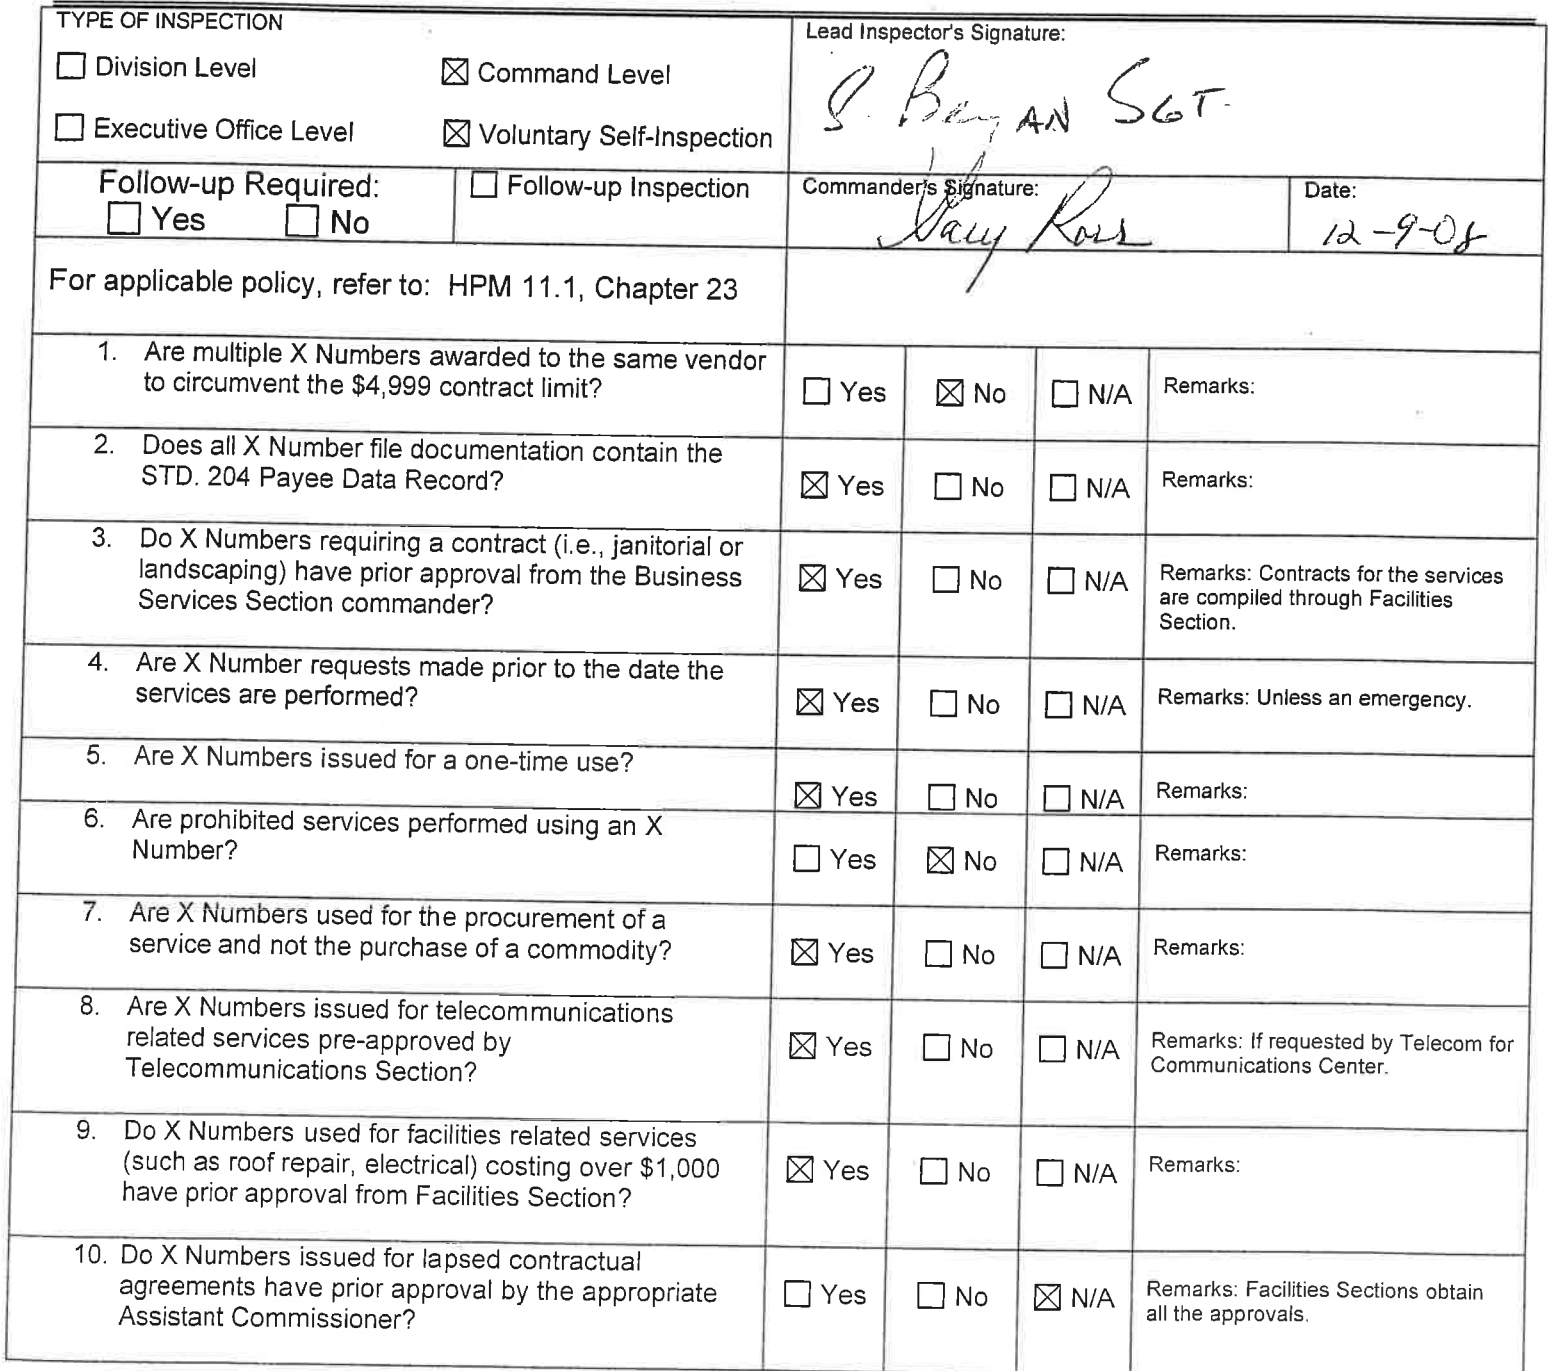 TYPE OF INSPECTION
☐ Division Level ☒ Command Level
☐ Executive Office Level ☒ Voluntary Self-Inspection
Lead Inspector's Signature:
S. AN SGT.
Follow-up Required:
☐ Yes ☐ No
☐ Follow-up Inspection
Commander's Signature:
Gary Ross
Date:
12-9-08
For applicable policy, refer to: HPM 11.1, Chapter 23
1. Are multiple X Numbers awarded to the same vendor
to circumvent the $4,999 contract limit?
☐ Yes ☒ No ☐ N/A Remarks:
2. Does all X Number file documentation contain the
STD. 204 Payee Data Record?
☒ Yes ☐ No ☐ N/A Remarks:
3. Do X Numbers requiring a contract (i.e., janitorial or
landscaping) have prior approval from the Business
Services Section commander?
☒ Yes ☐ No ☐ N/A Remarks: Contracts for the services
are compiled through Facilities
Section.
4. Are X Number requests made prior to the date the
services are performed?
☒ Yes ☐ No ☐ N/A Remarks: Unless an emergency.
5. Are X Numbers issued for a one-time use?
☒ Yes ☐ No ☐ N/A Remarks:
6. Are prohibited services performed using an X
Number?
☐ Yes ☒ No ☐ N/A Remarks:
7. Are X Numbers used for the procurement of a
service and not the purchase of a commodity?
☒ Yes ☐ No ☐ N/A Remarks:
8. Are X Numbers issued for telecommunications
related services pre-approved by
Telecommunications Section?
☒ Yes ☐ No ☐ N/A Remarks: If requested by Telecom for
Communications Center.
9. Do X Numbers used for facilities related services
(such as roof repair, electrical) costing over $1,000
have prior approval from Facilities Section?
☒ Yes ☐ No ☐ N/A Remarks:
10. Do X Numbers issued for lapsed contractual
agreements have prior approval by the appropriate
Assistant Commissioner?
☐ Yes ☐ No ☒ N/A Remarks: Facilities Sections obtain
all the approvals.